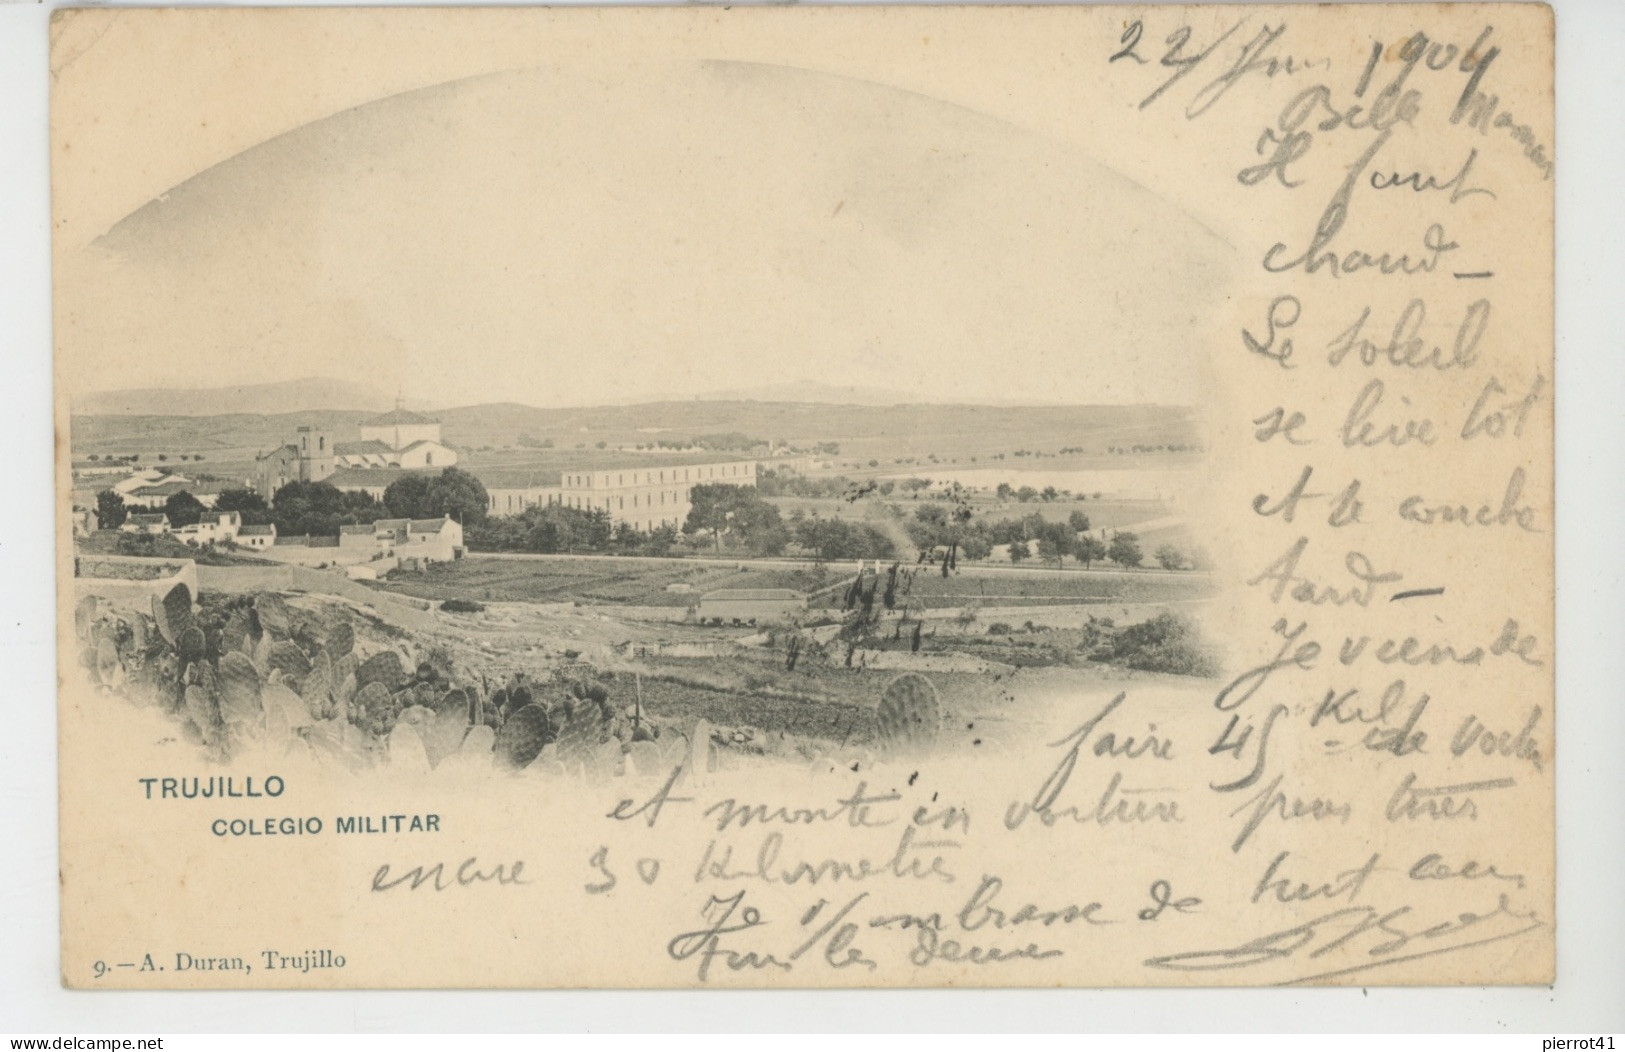 22/ 1904
Belle
Il fait
chaud -
Le soleil
se lève tôt
et se couche
tard -
Je viens de
faire 45 Kil de
et monte en voiture pour
encore 30 kilomètres
Je v/ embrasse de tout coeur
tous les deux
TRUJILLO
COLEGIO MILITAR
9.—A. Duran, Trujillo
delcampe.net
pierrot41